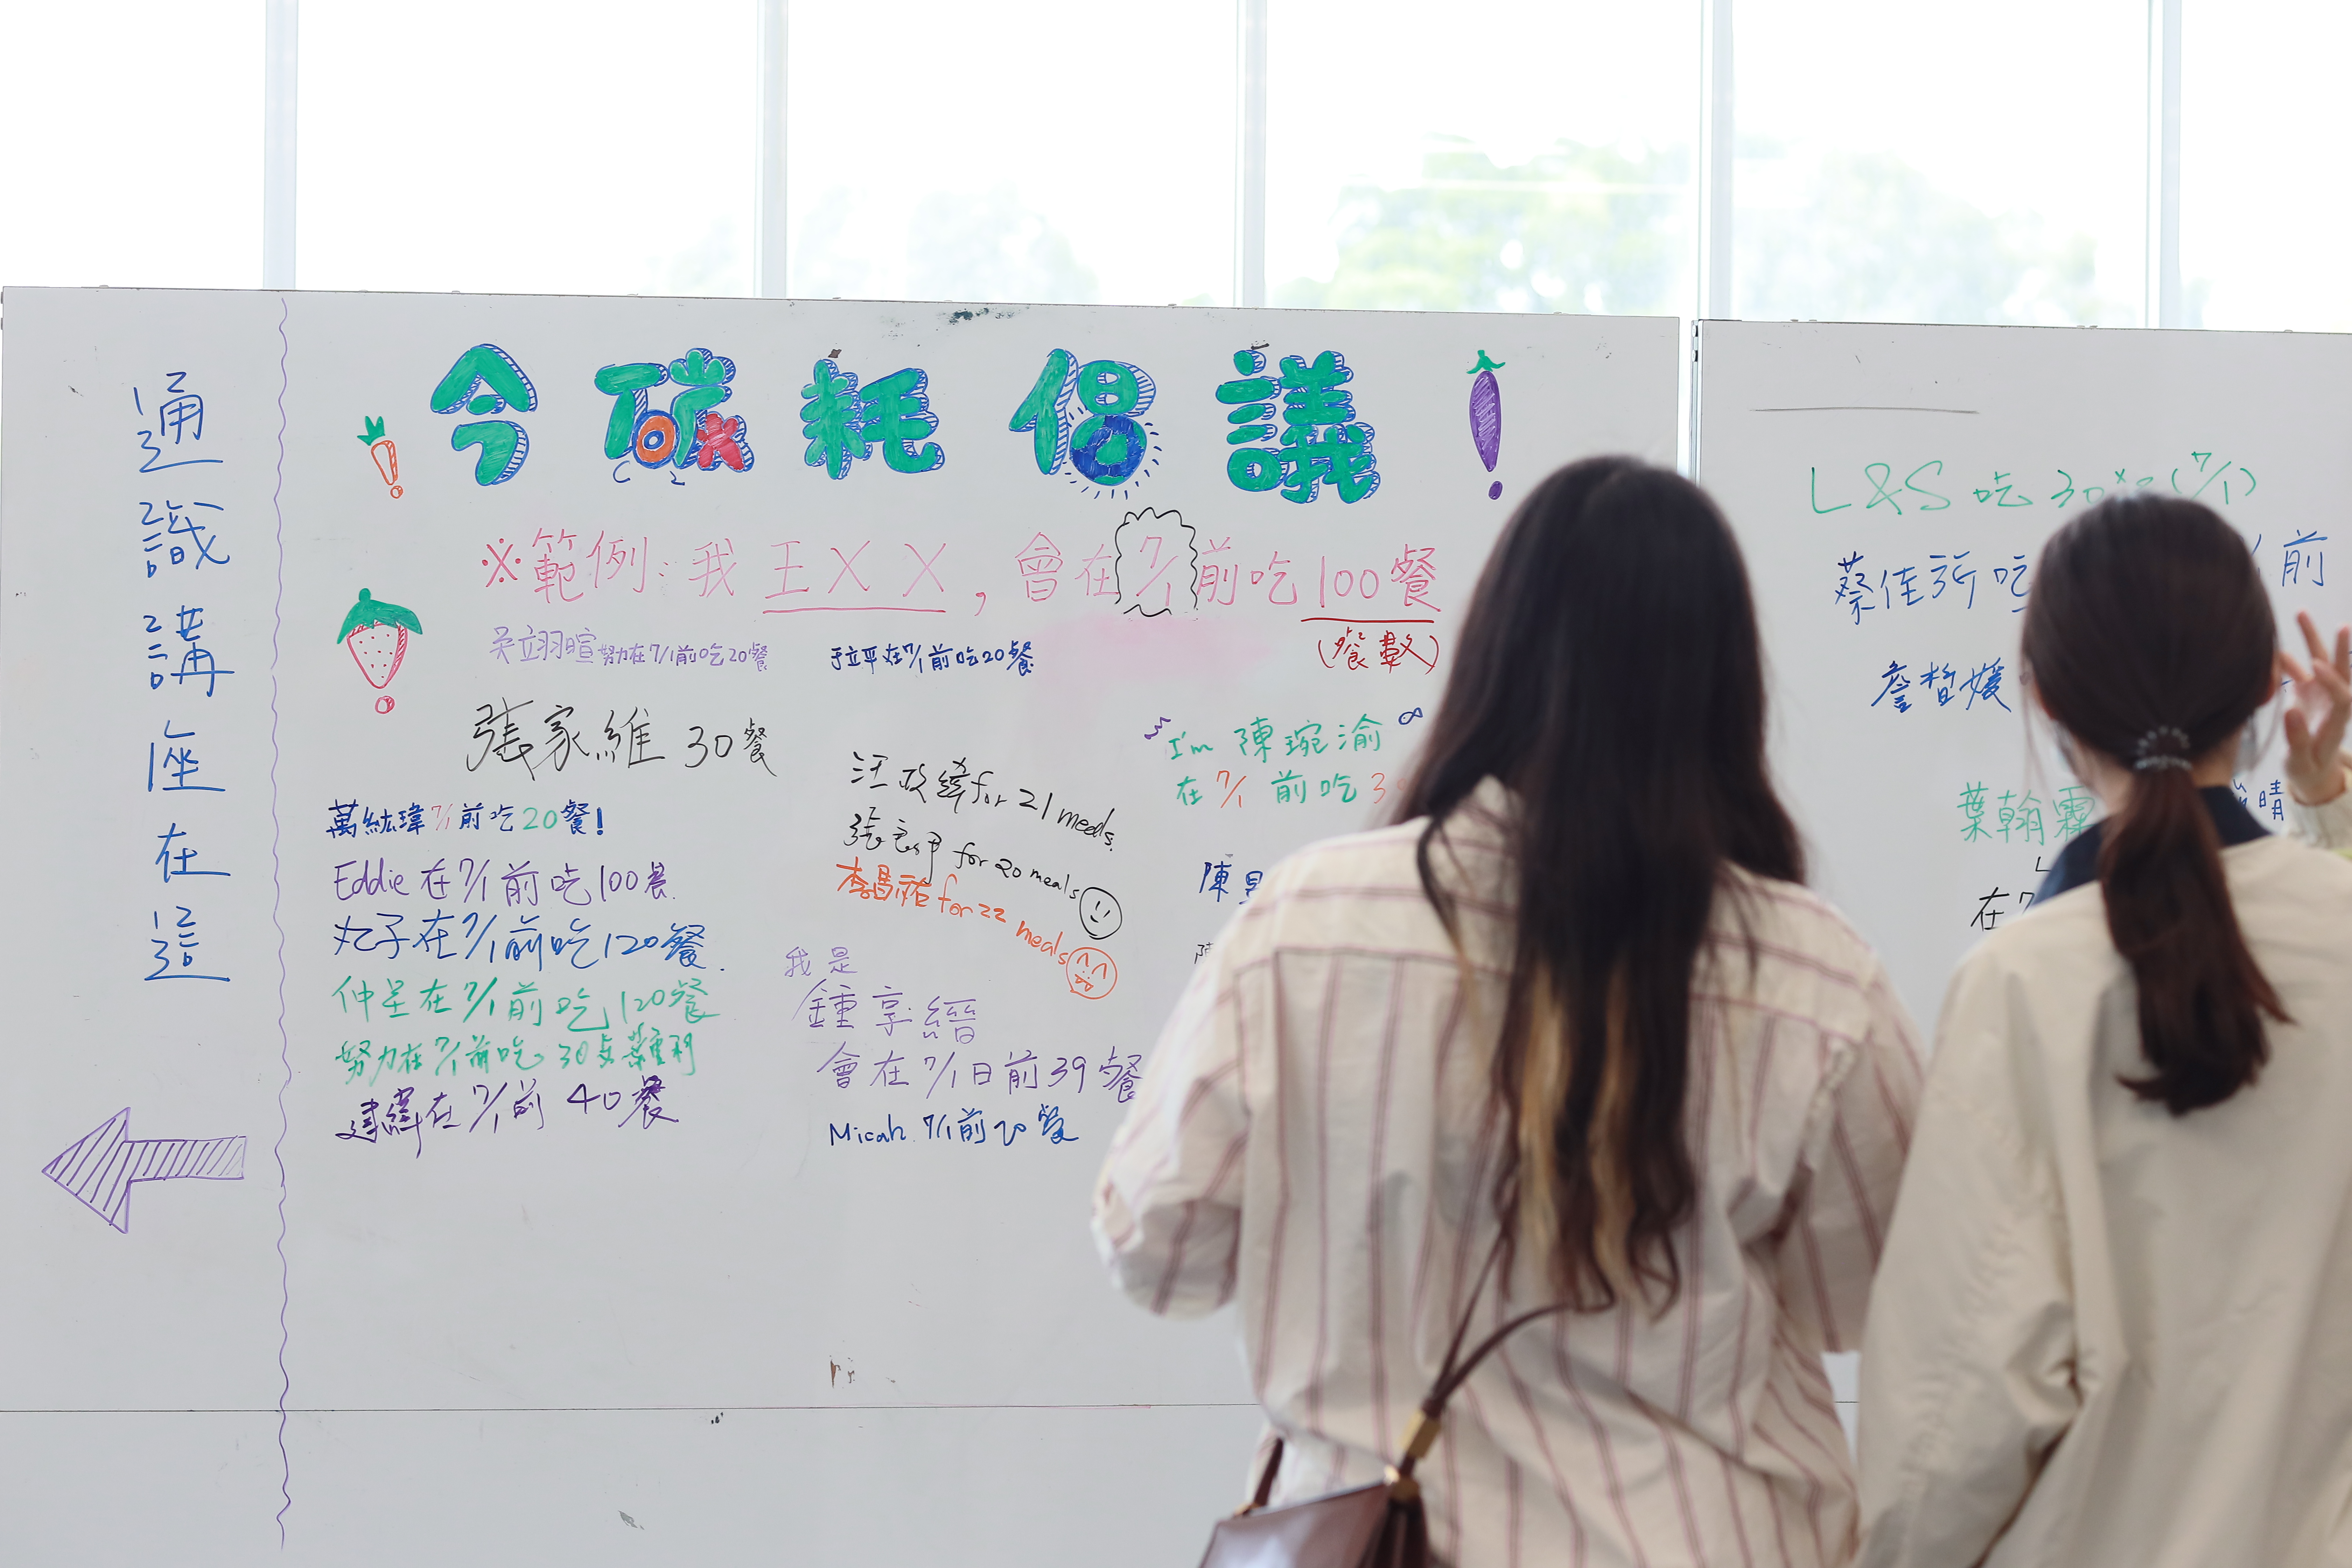 通識講座在這
令碳耗倡議!
C 2
※範例:我王XX,會在7/1前吃100餐
(餐數)
吳立羽暄努力在7/1前吃20餐
于立平在7/1前吃20餐
張家維 30餐
萬紘瑋7/1前吃20餐!
Eddie在7/1前吃100餐
丸子在7/1前吃120餐.
仲呈在7/1前吃120餐
努力在7/1前吃30
建緯在7/1前 40餐
汪政緯for 21 meals.
for 20 meals
李昌祐for 22 meals
我是
鍾享縉
會在7/1日前39餐
Micah 7/1前20餐
I'm 陳琬渝
在7/1前吃3
陳
L&S 吃30 (7/1)
蔡佳 吃 前
詹皙媛
葉翰霖
晴
在7